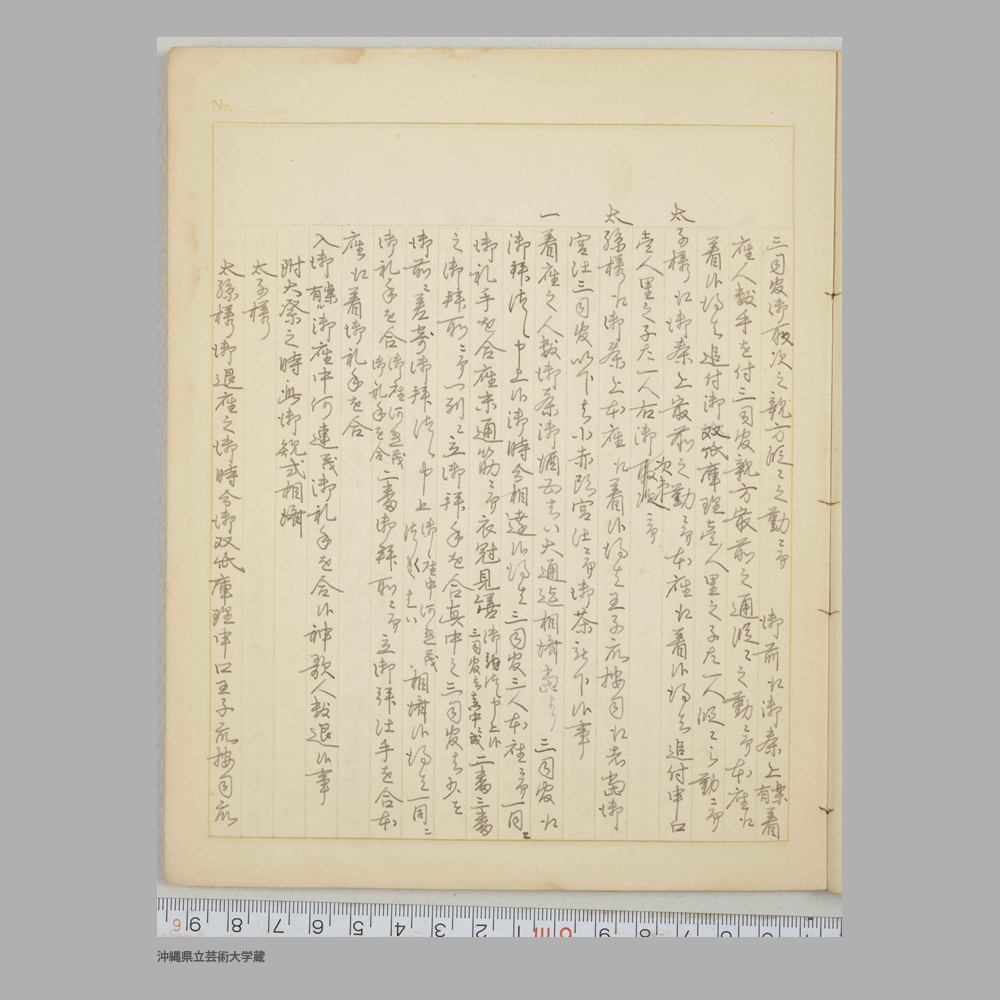 三司官御取次之親方役々之勤ニ而 御前江御奏上有楽着
座人数手を付三司官親方最前之通役々之勤ニ而本座江
着候得者追付御双紙庫理壱人里之子大一人役々之勤ニ而
太子様江御奏上最前之勤ニ而本座江着候得者追付申口
壱人里之子大一人右御次第ニ而
太孫様江御茶上本座江着候得者王子衆按司江老当御
宮仕三司官以下者小赤頭宮仕ニ而御茶被下候事
一着座之人数御茶御酒
大通迄相済 三司官江
御拝申上候御時分相達候得者三司官三人本座ニ而一同ニ
御礼手を合座末通筋ニ而衣冠見合 御拝申上候三司官者真中 二番三番
之御拝所ニ而一列ニ立御拝手を合真中之三司官者
御前ニ差寄御拝申上 御座中何連茂 相済候得者一同ニ
御礼手を合 御座何連茂御礼手を合 二番御拝所ニ而立御拝仕手を合本
座江着御礼手を合
入御有楽 御座中何連茂御礼手を合候神歌人数退候事
附大祭之時此御規式相済
太子様
太孫様御退座之御時分御双紙庫理申口王子衆按司衆
No.
9 8 7 6 5 4 3 2 1
沖縄県立芸術大学蔵